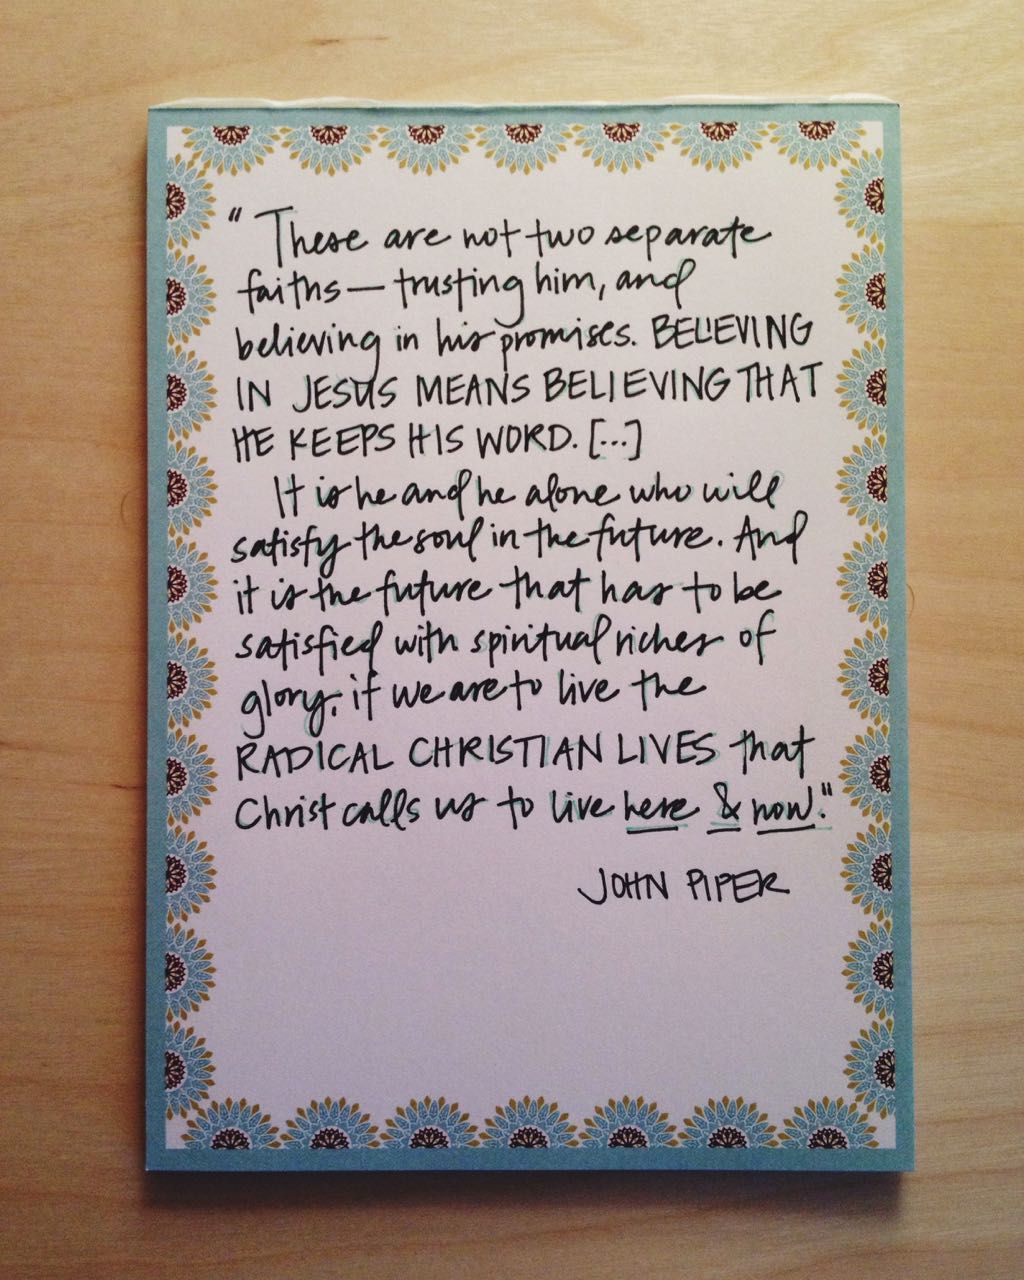 "These are not two separate
faiths—trusting him, and
believing in his promises. BELIEVING
IN JESUS MEANS BELIEVING THAT
HE KEEPS HIS WORD. [...]
It is he and he alone who will
satisfy the soul in the future. And
it is the future that has to be
satisfied with spiritual riches of
glory, if we are to live the
RADICAL CHRISTIAN LIVES that
Christ calls us to live here & now."
JOHN PIPER